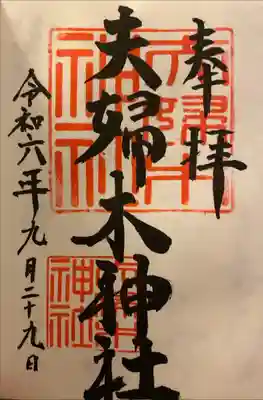 奉拝
夫婦木神社
令和六年九月二十九日